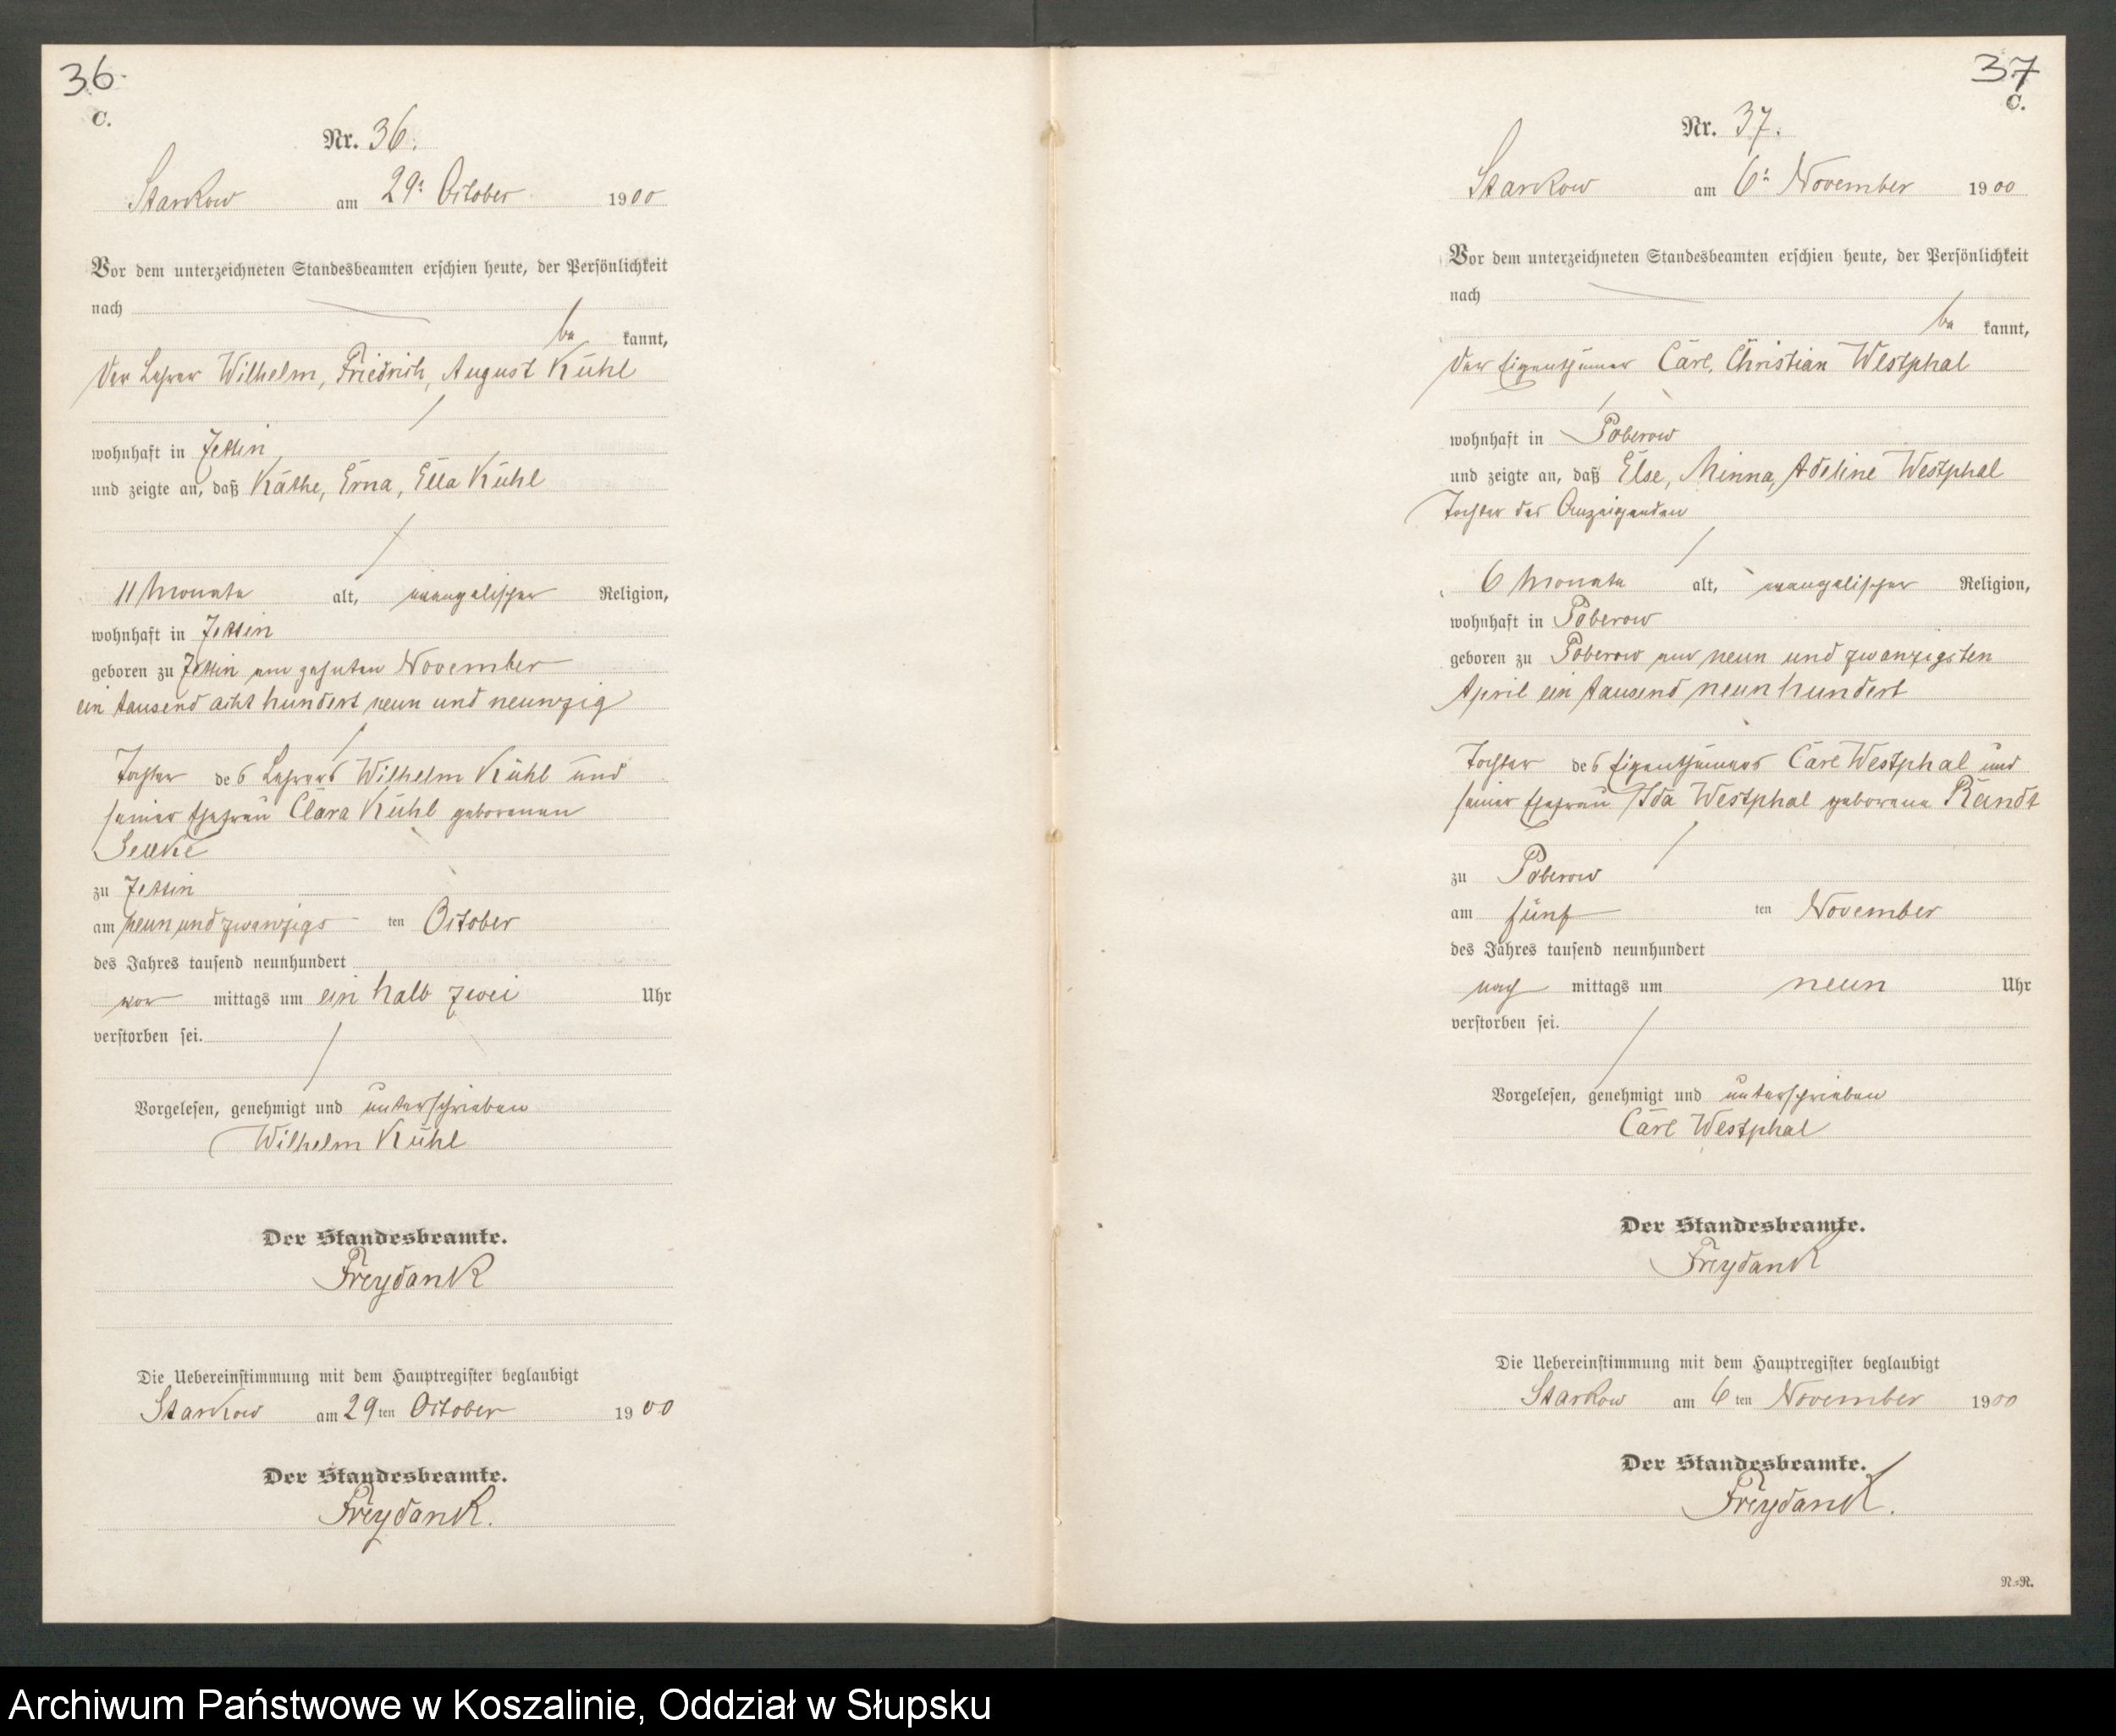 36.
C.
Nr. 36.
Starkow am 29t October 1900
Vor dem unterzeichneten Standesbeamten erschien heute, der Persönlichkeit
nach
be kannt,
der Lehrer Wilhelm, Friedrich, August Kühl
wohnhaft in Jettin
und zeigte an, daß Käthe, Erna, Ella Kühl
11 Monate alt, evangelischer Religion,
wohnhaft in Jettin
geboren zu Jettin am zehnten November
ein tausend acht hundert neun und neunzig
Tochter des Lehrers Wilhelm Kühl und
seiner Ehefrau Clara Kühl geborenen
zu Jettin
am neun und zwanzigs ten October
des Jahres tausend neunhundert
vor mittags um ein halb zwei Uhr
verstorben sei.
Vorgelesen, genehmigt und unterschrieben
Wilhelm Kühl
Der Standesbeamte.
Freydank
Die Uebereinstimmung mit dem Hauptregister beglaubigt
Starkow am 29ten October 1900
Der Standesbeamte.
Freydank.
37
C.
Nr. 37.
Starkow am 6t November 1900
Vor dem unterzeichneten Standesbeamten erschien heute, der Persönlichkeit
nach
be kannt,
der Eigenthümer Carl, Christian Westphal
wohnhaft in Poberow
und zeigte an, daß Else, Minna, Adeline Westphal
Tochter des Anzeigenden
6 Monate alt, evangelischer Religion,
wohnhaft in Poberow
geboren zu Poberow am neun und zwanzigsten
April ein tausend neunhundert
Tochter des Eigenthümers Carl Westphal und
seiner Ehefrau Ida Westphal geborene Randt
zu Poberow
am fünf ten November
des Jahres tausend neunhundert
nach mittags um neun Uhr
verstorben sei.
Vorgelesen, genehmigt und unterschrieben
Carl Westphal
Der Standesbeamte.
Freydank
Die Uebereinstimmung mit dem Hauptregister beglaubigt
Starkow am 6 ten November 1900
Der Standesbeamte.
Freydank.
N.=R.
Archiwum Państwowe w Koszalinie, Oddział w Słupsku